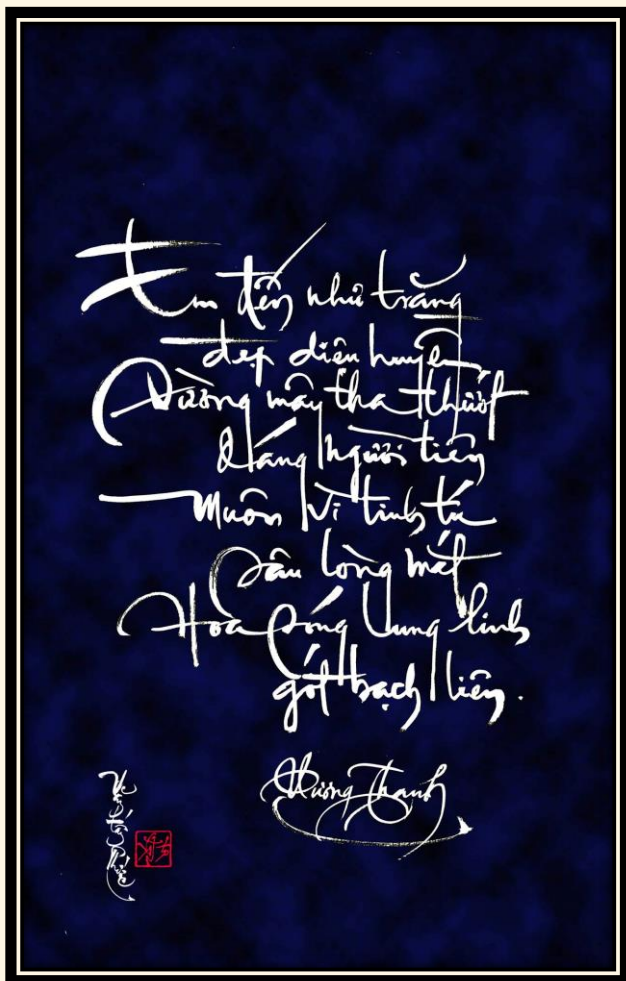 Em đến như trăng
đẹp diễm huyền
Đường mây tha thướt
dáng người tiên
Muôn vì tinh tú
sâu lòng mắt
Hoa sóng lung linh
gót bạch liên.
Hương Thanh